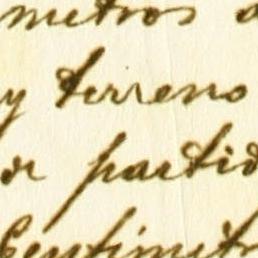 metros
y terreno
or partid
Centimetr